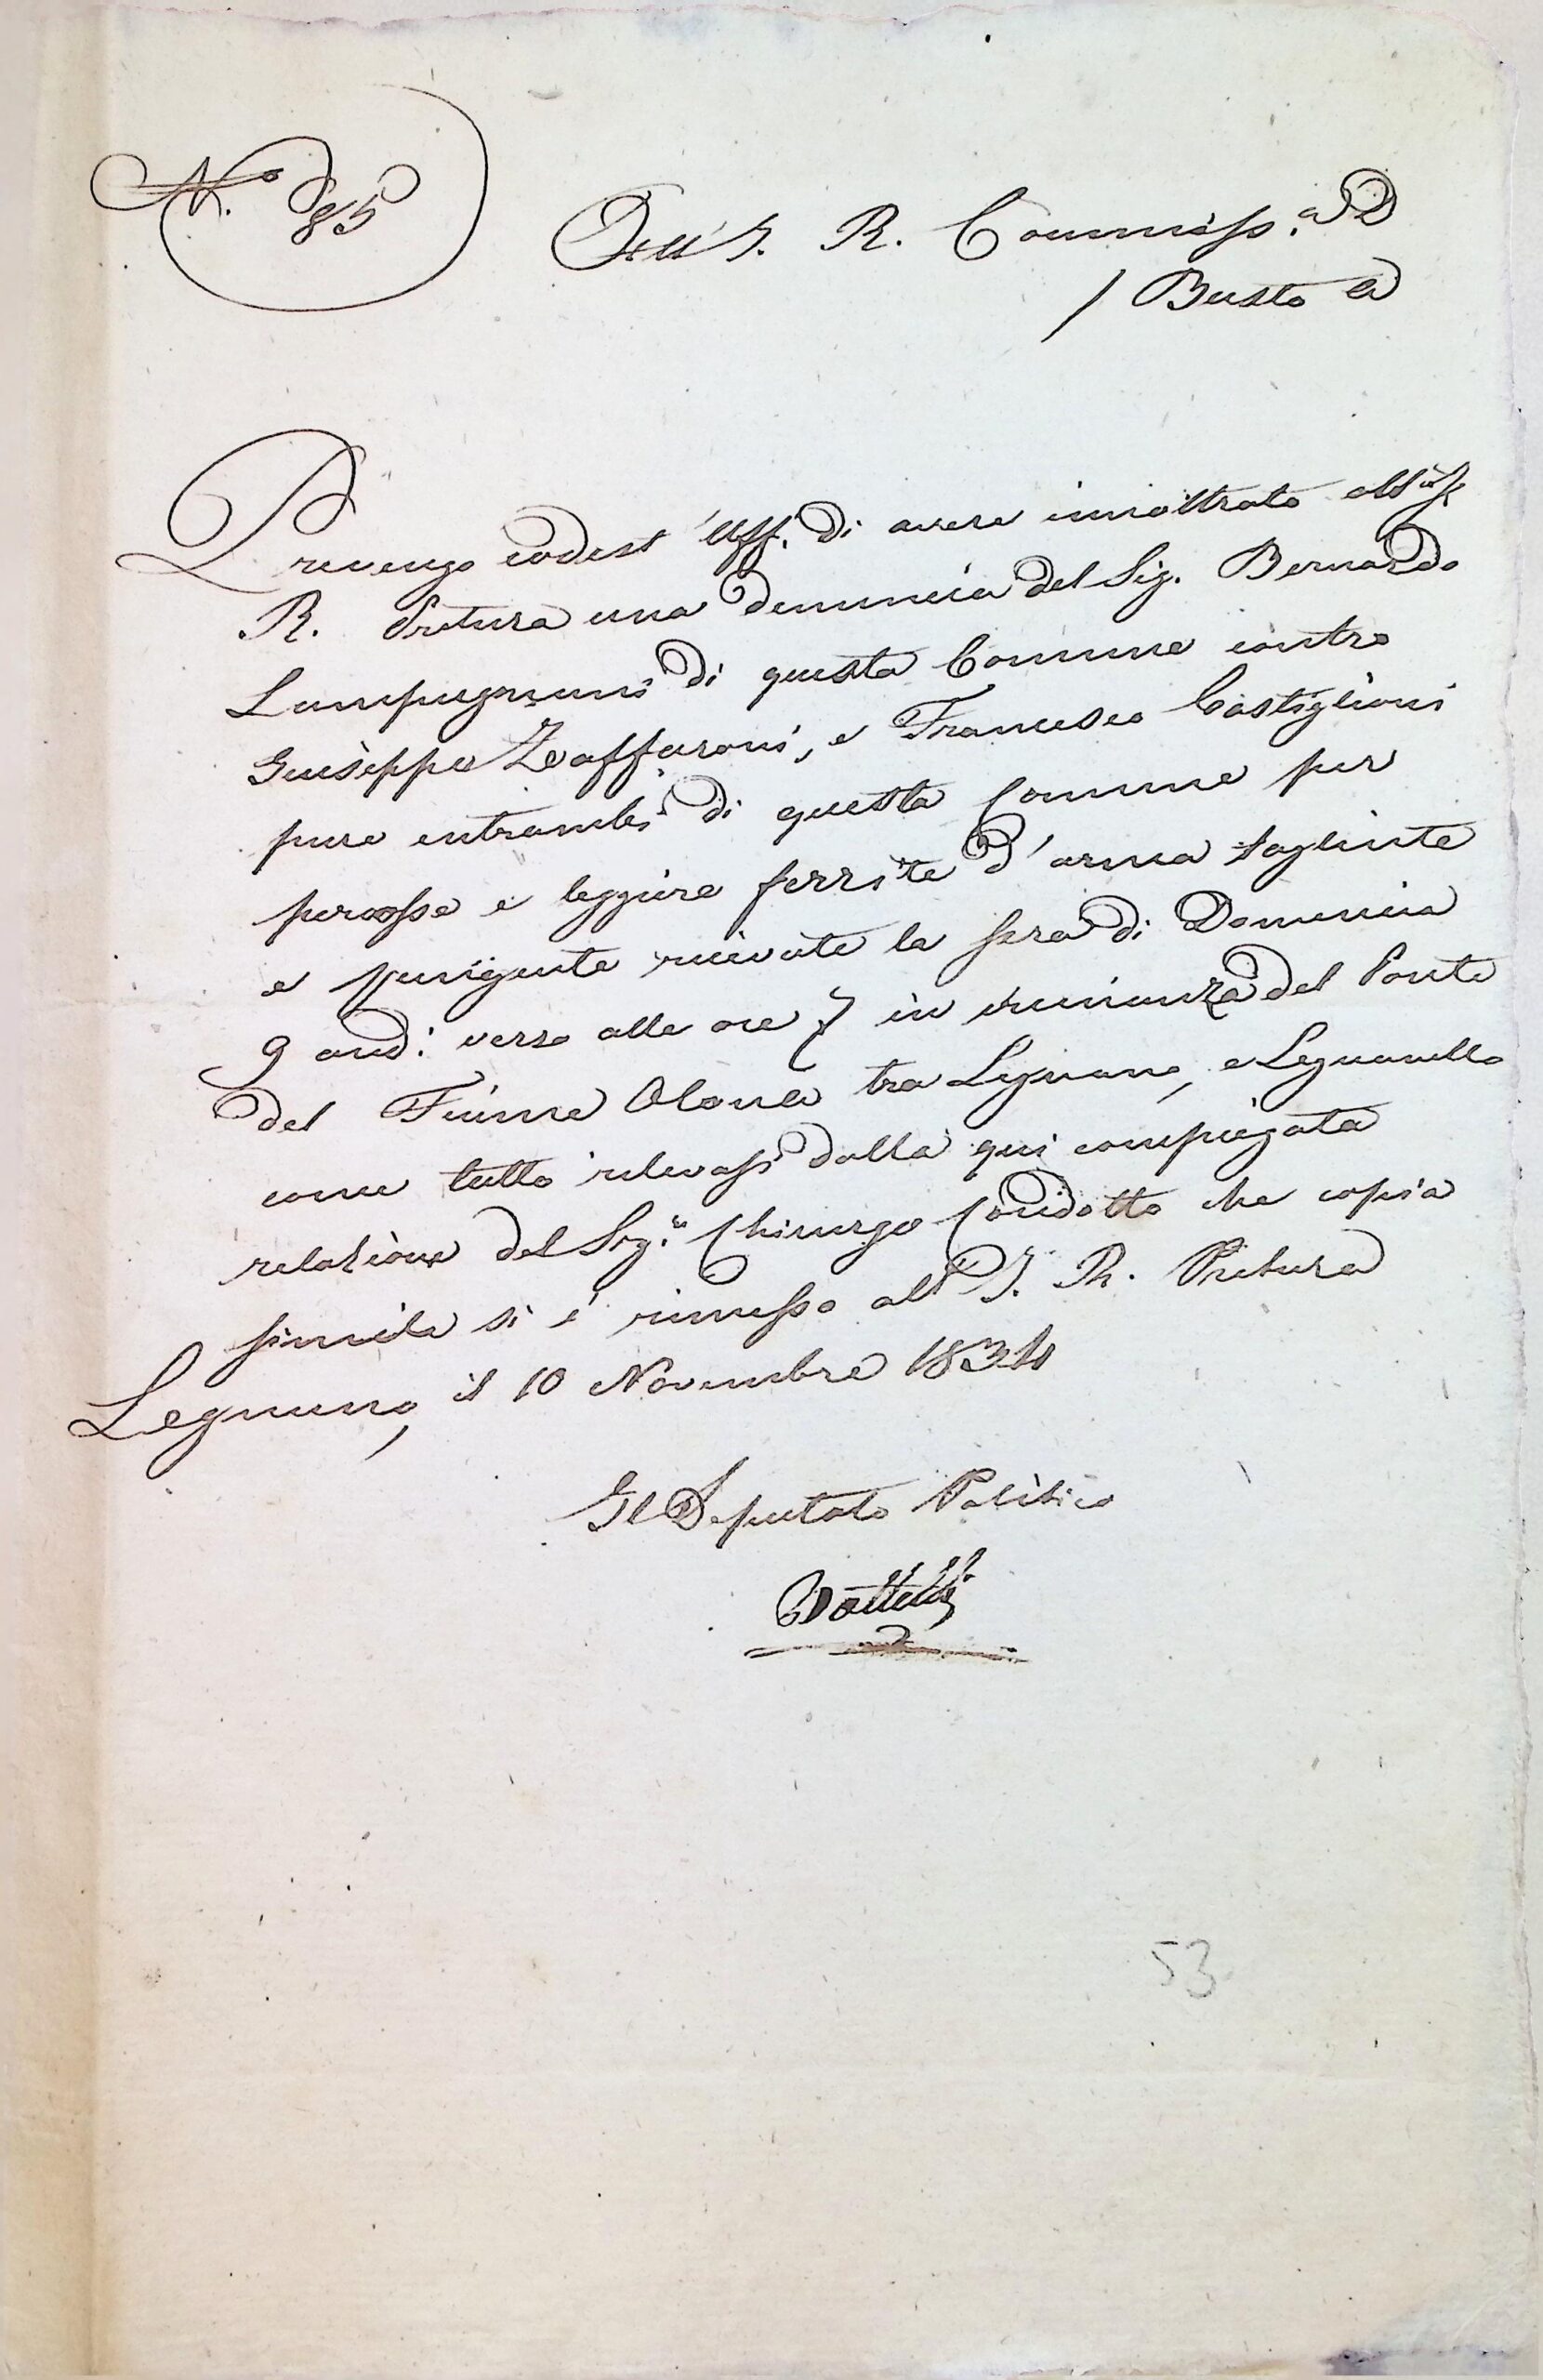 N.º 85
All' I. R. Commiss. D
/ Busto A
Prevengo codest' Uff. di avere innoltrato all' I.
R. Pretura una denuncia del Sig. Bernardo
Lampugnani di questa Comune contro
Giuseppe Zaffaroni, e Francesco Castiglioni
pure entrambi di questa Comune per
percosse e leggiere ferrite d'arma tagliente
e pungente ricevute la sera di Domenica
9 and. verso alle ore 7 in vicinanza del Ponte
del Fiume Olona tra Legnano, e Legnanello
come tutto rilevasi dalla qui compiegata
relazione del Sig. Chirurgo Condotto che copia
simile si è rimesso all' I. R. Pretura
Legnano, il 10 Novembre 1834
Il Deputato Politico
53